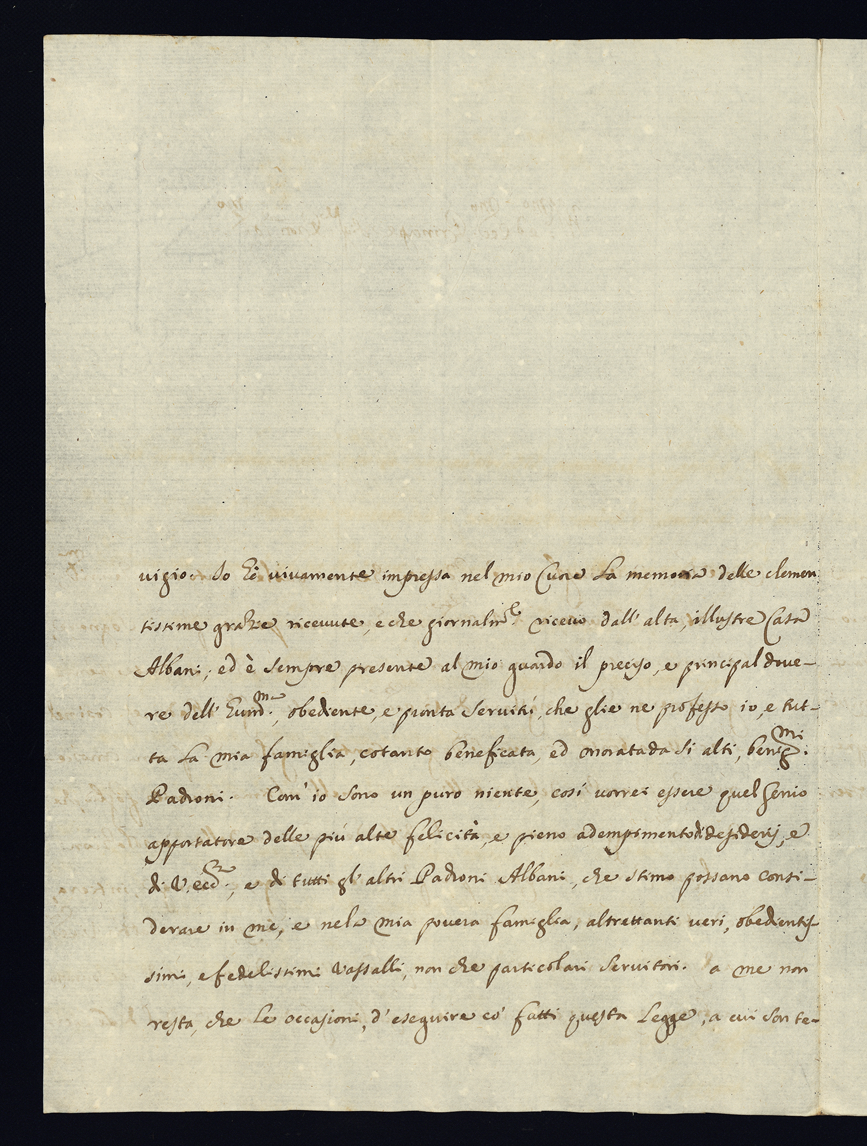 vigio. Io hò vivamente impressa nel mio Cuore la memoria delle clemen
tissime grazie ricevute, e che giornalm.te ricevo dall' alta, illustre Casa
Albani, ed è sempre presente al mio guardo il preciso, e principal dove-
re dell' umil.ma, obediente, e pronta servitù, che glie ne professo io, e tut-
ta la mia famiglia, cotanto beneficata, ed onorata da sì alti, benig.mi
Padroni. Com' io sono un puro niente, così vorrei essere quel Genio
apportatore delle più alte felicità, e pieno adempimento di desiderj, e
di V. ecc.za, e di tutti gl' altri Padroni Albani, che stimo possano consi-
derare in me, e nela mia povera famiglia, altrettanti veri, obedientis-
simi, e fedelissimi Vassalli, non che particolari servitori. a me non
resta, che le occasioni, d' eseguire co' fatti questa Legge, a cui son te-